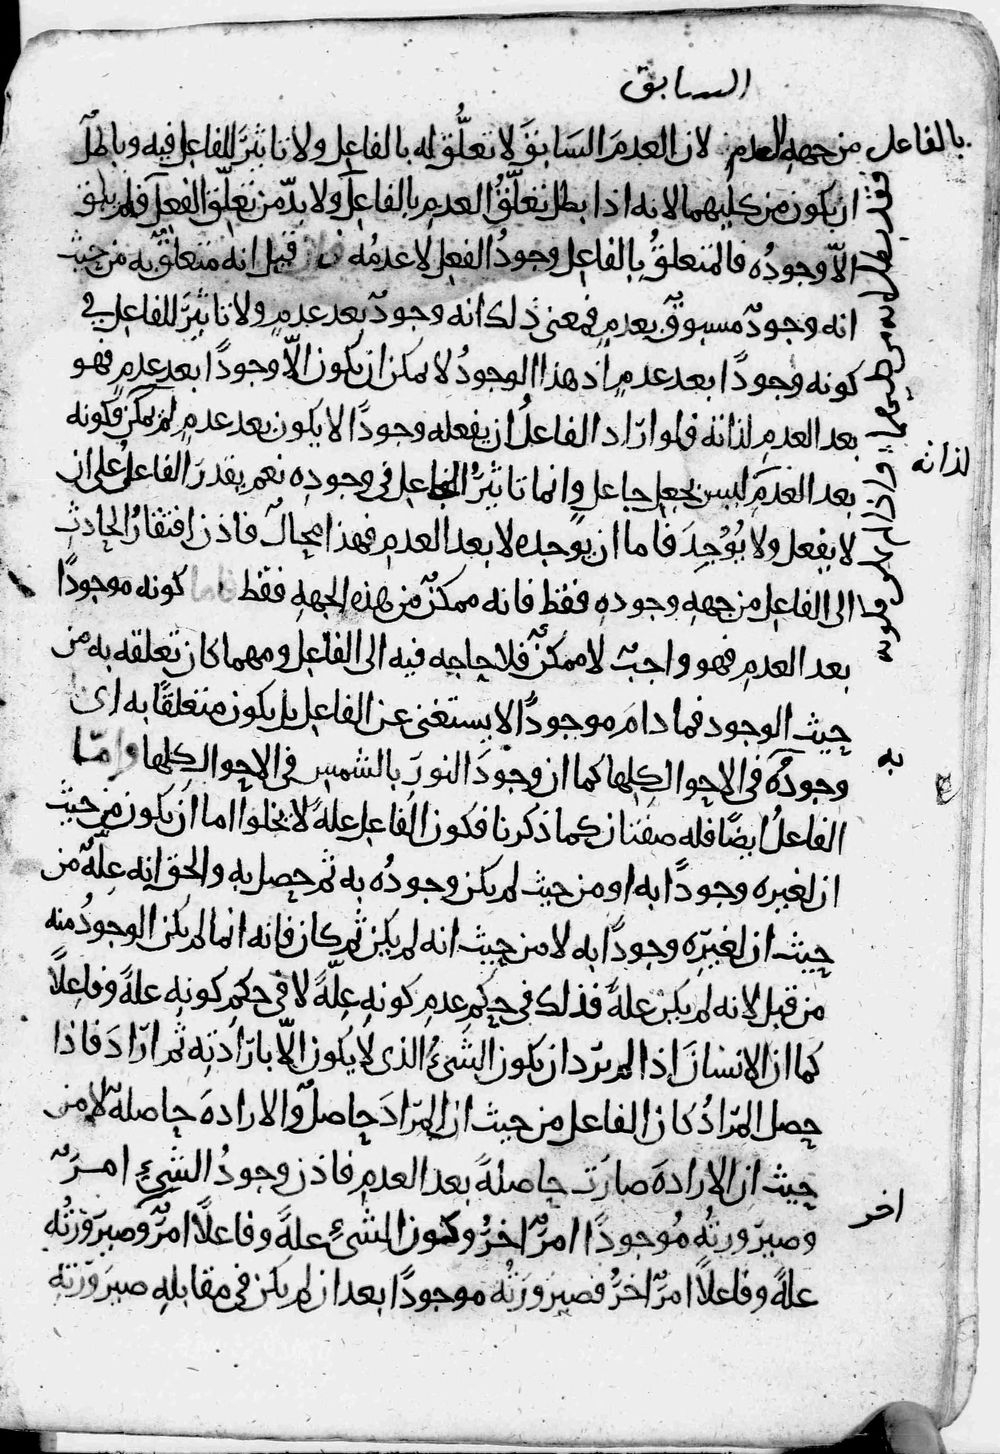 السابق
بالفاعل من جهه العدم لان العدمَ السَابقَ لا تعلُّق له بالفاعل ولا تاثيَر للفاعل فيه وباطلٌ
ان يكون من كليهما لانه اذا بطل تعلّقُ العدم بالفاعل ولا بدّ من تعلّق الفعل فلم يبق
الّا وجودُه فالمتعلقُ بالفاعل وجودُ الفعل لا عدمُه فان قيل انه متعلقٌ به من حيث
انه وجودٌ مسبوقٌ بعدمٍ فمعنى ذلك انه وجودٌ بعد عدمٍ ولا تاثيَر للفاعل في
كونه وجودًا بعد عدمٍ اذ هذا الوجودُ لا يمكن ان يكون الّا وجودًا بعد عدمٍ فهو
بعد العدم لذاته فلو ارَاد الفاعلُ ان يفعله وجودًا لا يكون بعد عدمٍ لم يمكن فكونه
بعد العدَم ليس بجعل جاعلٍ وانما تاثيُر الفاعل في وجودِه نعم يقدرَ الفاعلُ على ان
لا يفعل ولا يُوْجِدَ فاما ان يوجده لا بعد العدم فهذا محالٌ فاذن افتقارُ الحادث
الى الفاعل من جههِ وجودهِ فقط فانه ممكنٌ من هذه الجههِ فقط فاما كونه موجودًا
بعد العدم فهو واجبٌ لا ممكنٌ فلا حاجه فيه الى الفاعل ومهما كان تعلقه به من
حيث الوجود فما دامَ موجودًا لا يستغنى عن الفاعل بل يكون متعلقًا به اى
وجودُه في الاحوال كلها كما ان وجودَ النورَ بالشمس في الاحوال كلها وامّا
الفاعلُ ايضًا فله صفتان كما ذكرنا فكون الفاعل علةً لا يخلوا اما ان يكون من حيث
ان لغيره وجودًا به او من حيث لم يكن وجودُه به ثم حصل به والحق انه علةٌ من
حيث ان لغيرِه وجودًا به لا من حيث انه لم يكن ثم كان فانه انما لم يكن الوجودُ منه
من قبل لانه لم يكن علةً فذلك في حكم عدم كونهِ علّةً لا في حكم كونهِ علةً وفاعلًا
كما ان الانسانَ اذا لم يرد ان يكون الشىءُ الذى لا يكون الّا بارَادَتِه ثم ارَادَ فاذا
حصل المرَادُ كان الفاعل من حيث ان المرَادَ حاصلٌ والارادهَ حاصلةٌ لا من
حيث ان الارادهَ صارَت حاصلةً بعد العدم فاذن وجودُ الشىءِ امرٌ
وصيرورتُه مُوجودًا امرٌ اخرُ وكون الشىءِ علةً وفاعلًا امرٌ وصيرَورَتُه
علةً وفاعلًا امرٌ اخرُ فصيرَورَتُه موجودًا بعد ان لم يكن في مقابلهِ صيرَورَتهِ
لذاته
به
اخر